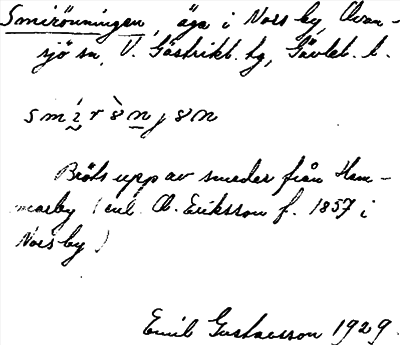 Smirönningen, äga i Norsby, Ovan-
sjö sn, V. Gästrikl. hg, Gävleb. l.
Bröts upp av smeder från Ham-
marby (enl. O. Eriksson f. 1857 i
Norsby)
Emil Gustavsson 1929.